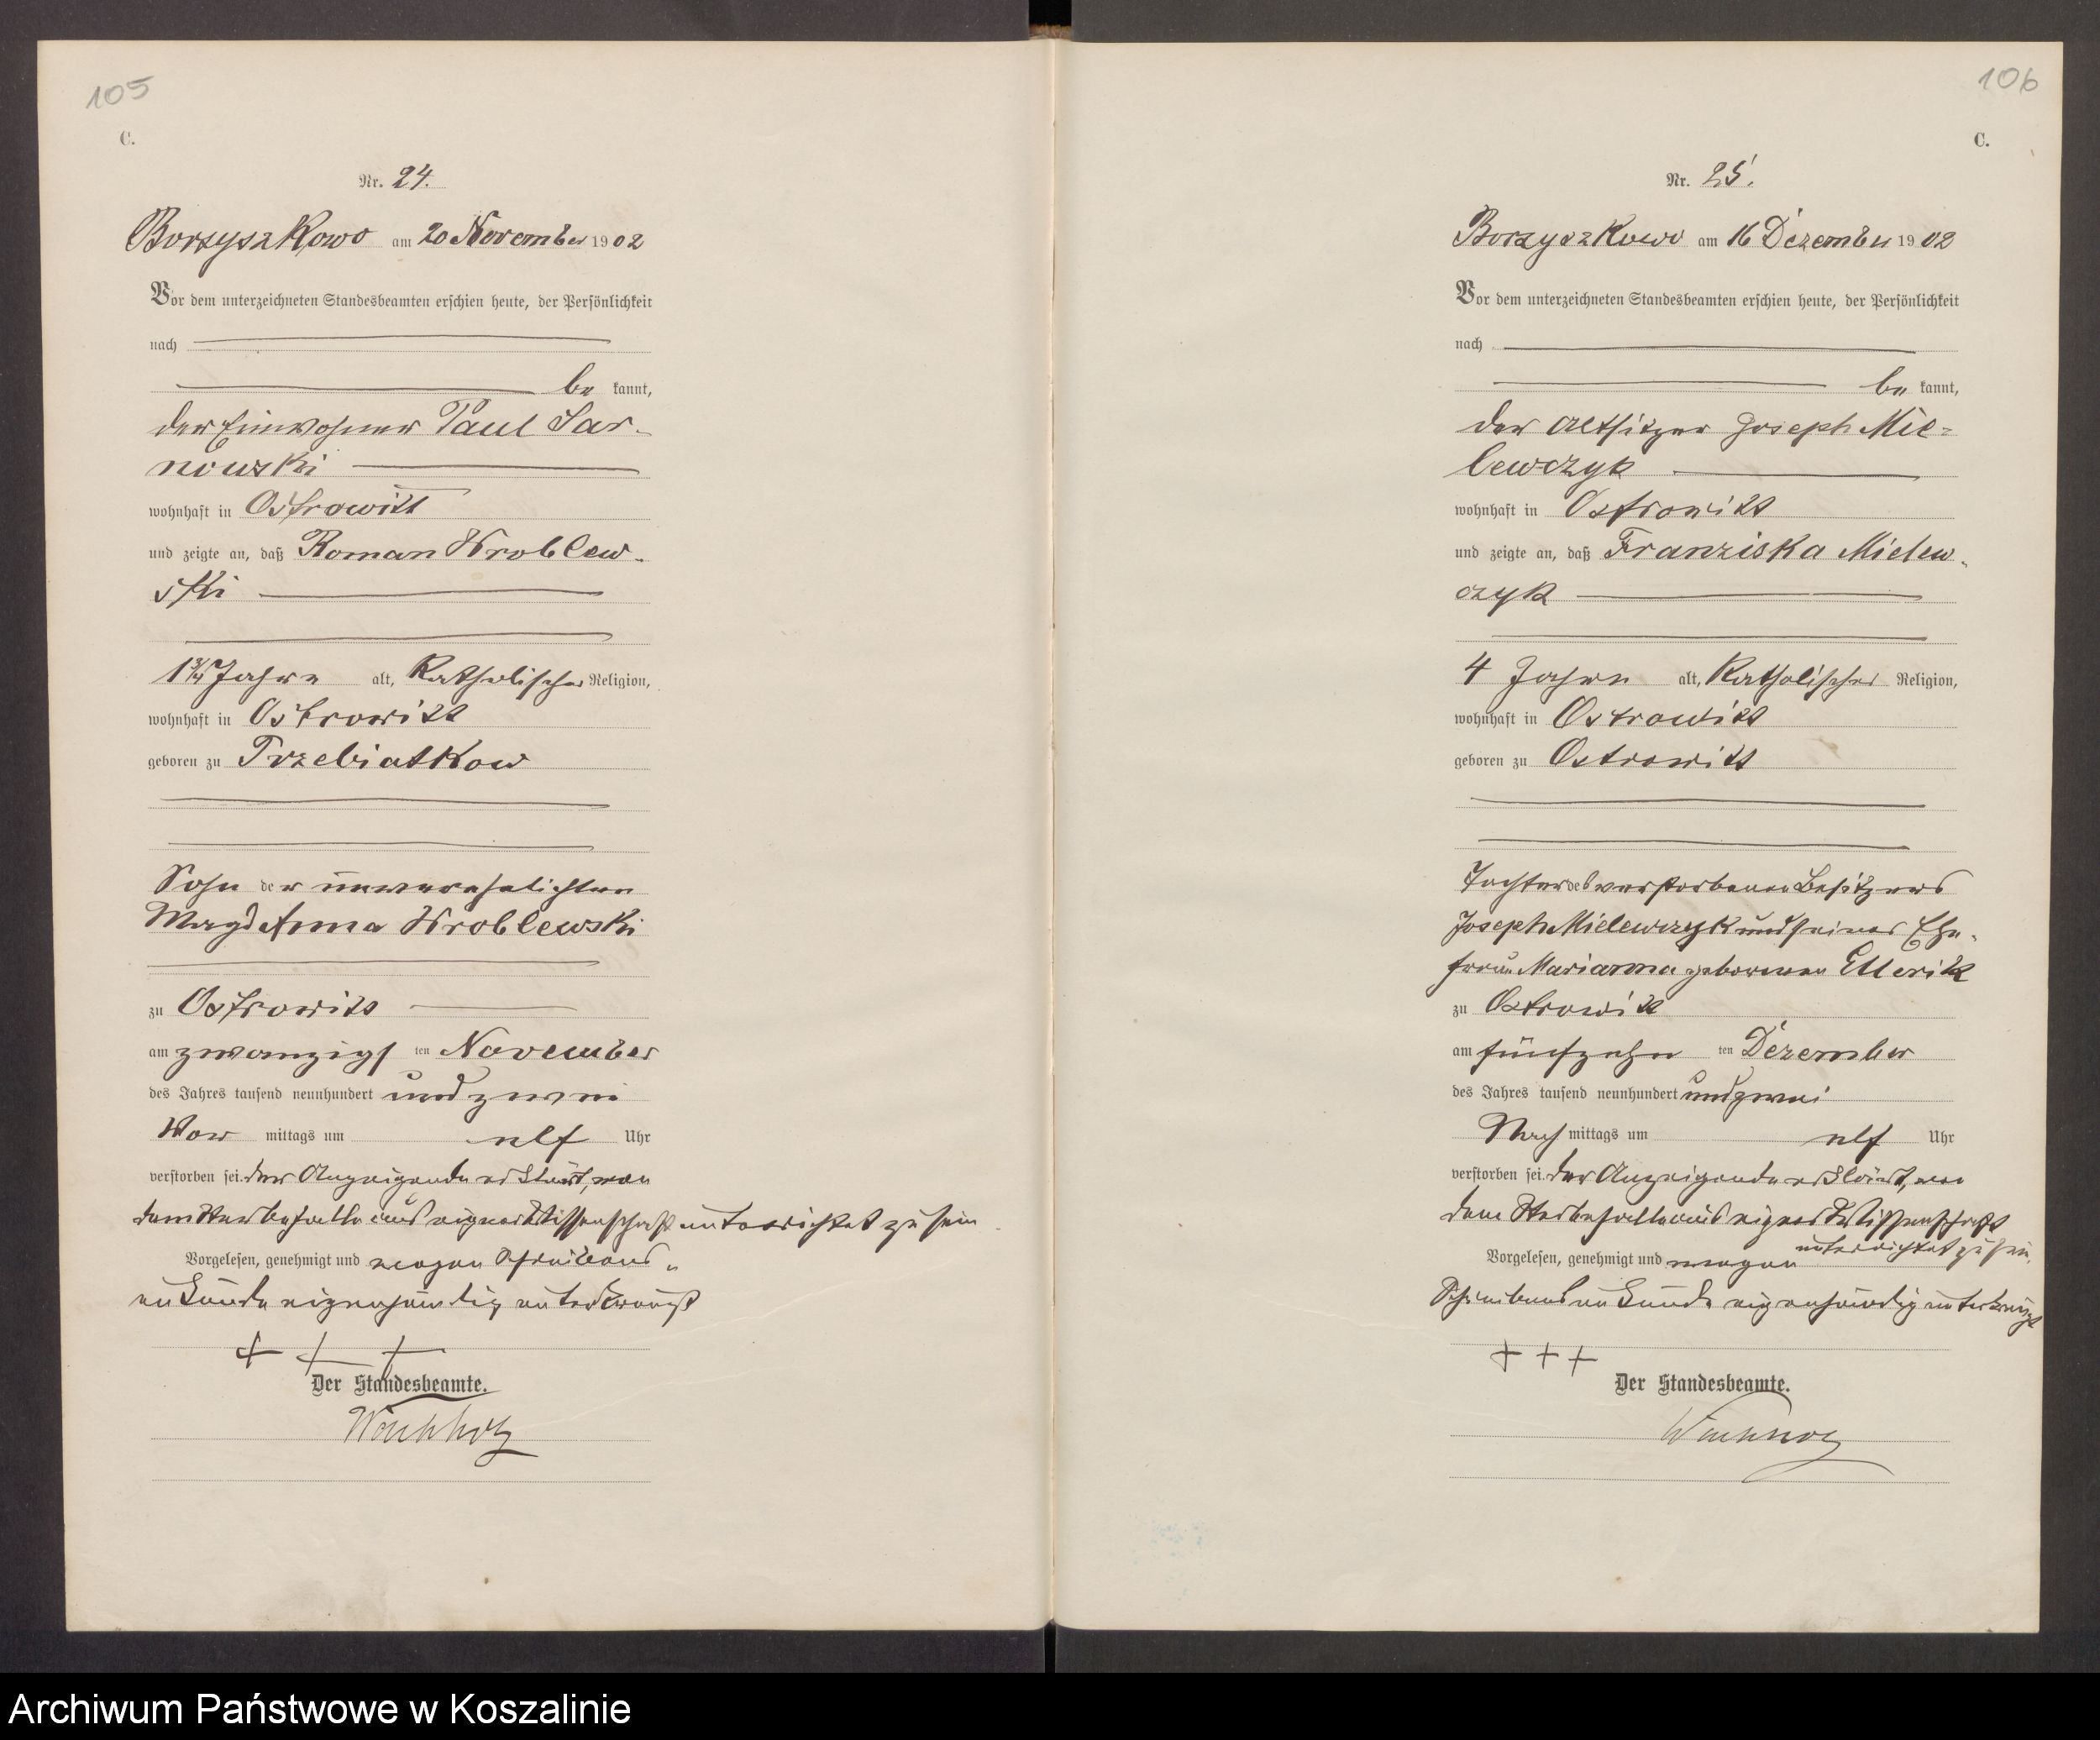 105
C.
Nr. 24.
Borzyszkowo am 20 November 1902
Vor dem unterzeichneten Standesbeamten erschien heute, der Persönlichkeit
nach
be kannt,
der Einwohner Paul Sar-
nowski
wohnhaft in Ostrowitt
und zeigte an, daß Roman Wroblew-
ski
1 3/4 Jahre alt, Katholischer Religion,
wohnhaft in Ostrowitt
geboren zu Trzebiatkow
Sohn der unverehelichten
Magd Anna Wroblewski
zu Ostrowitt
am zwanzigs ten November
des Jahres tausend neunhundert und zwei
Vor mittags um elf Uhr
verstorben sei. der Anzeigende erklärt, von
dem Sterbefalle aus eigner Wissenschaft unterrichtet zu sein
Vorgelesen, genehmigt und wegen Schreibens-
unkunde eigenhändig unterkreuzt
+ + +
Der Standesbeamte.
106
C.
Nr. 25.
Borzyszkowo am 16 Dezember 1902
Vor dem unterzeichneten Standesbeamten erschien heute, der Persönlichkeit
nach
be kannt,
der Altsitzer Joseph Mie=
lewczyk
wohnhaft in Ostrowitt
und zeigte an, daß Franziska Mielew-
czyk
4 Jahre alt, Katholischer Religion,
wohnhaft in Ostrowitt
geboren zu Ostrowitt
Tochter des verstorbenen Besitzers
Joseph Mielewczyk und seiner Ehe-
frau Marianna geborenen Ellerik
zu Ostrowitt
am fünfzehn ten Dezember
des Jahres tausend neunhundert und zwei
Nach mittags um elf Uhr
verstorben sei. der Anzeigende erklärt, von
dem Sterbefalle aus eigner Wissenschaft
unterrichtet zu sein.
Vorgelesen, genehmigt und wegen
Schreibensunkunde eigenhändig unterkreuzt
+ + +
Der Standesbeamte.
Archiwum Państwowe w Koszalinie